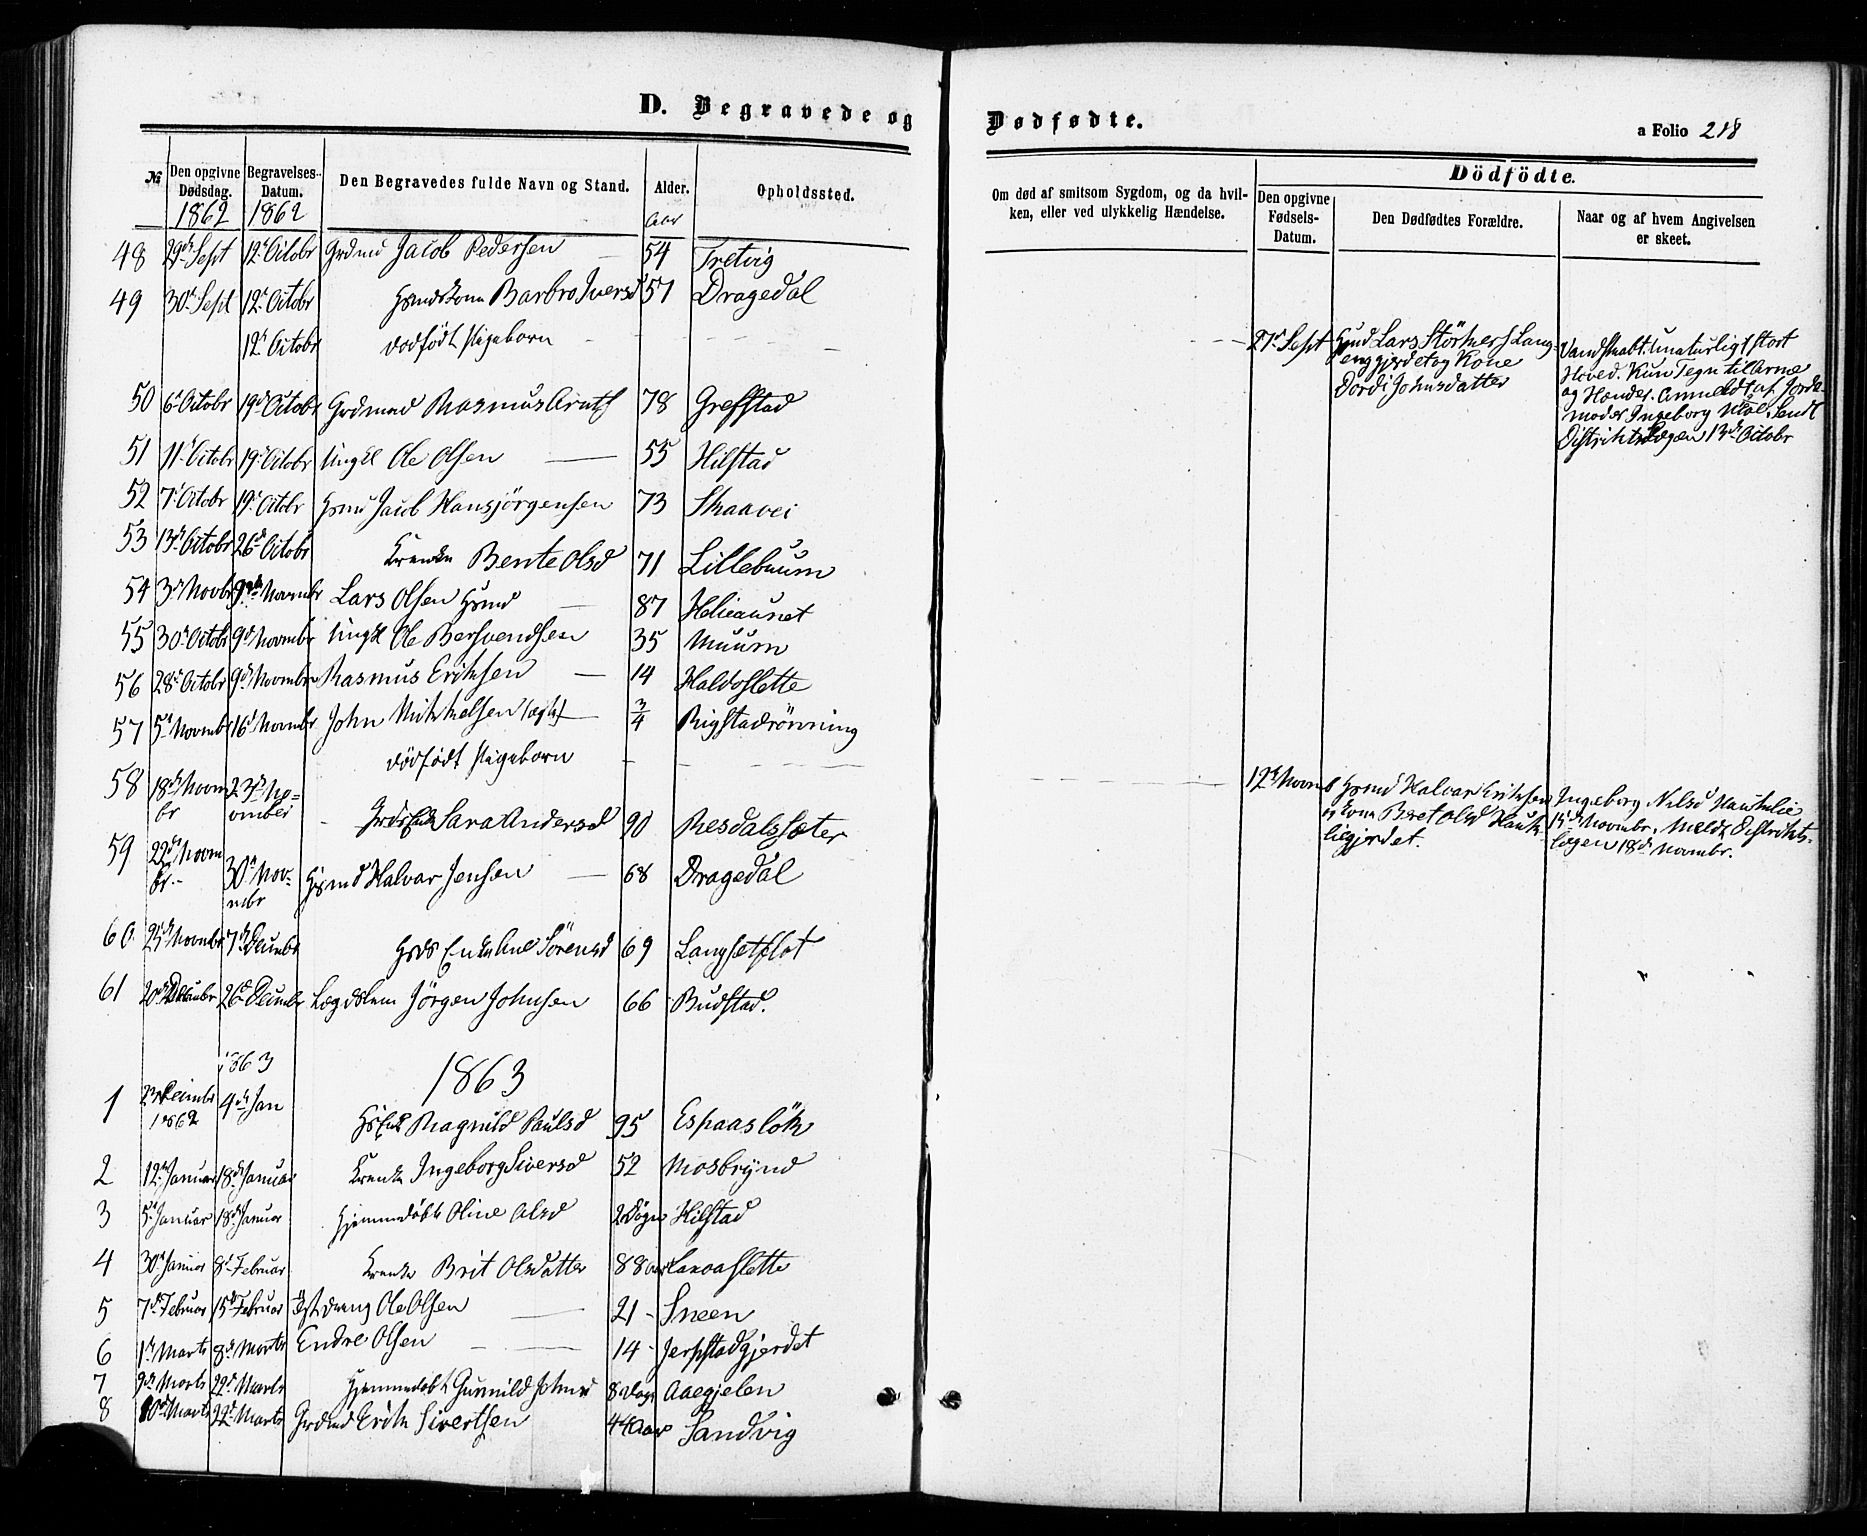 D. Begravede og Dødfødte.
a Folio 218
№ Den opgivne Dødsdag. Begravelses-Datum. Den Begravedes fulde Navn og Stand. Alder. Opholdssted.
Om død af smitsom Sygdom, og da hvilken, eller ved ulykkelig Hændelse.
Dödfödte.
Den opgivne Fødsels-Datum. Den Dødfødtes Forældre. Naar og af hvem Angivelsen er skeet.
1862 1862 Aar
48 29de Sept 12te Octobr Grdmd Jacob Pedersen 54 Tretvig
49 30te Sept 12te Octobr Hsmdskone Barbro Iversd 57 Dragedal
12te Octobr dödfödt Pigebarn
21de Sept Hsmd Lars Störkers Lang-
enggjerdet og Kone
Dordi Johnsdatter
Vandskabt. Unaturligt stort
Hoved. Kun Tegn til Arme
og Hænder. Anmeldt af Jorde-
moder Ingeborg
Distriktslægen 13de Octobr
50 6te Octobr 19de Octobr Grdmand Rasmus Arnts 78 Grefstad
51 11te Octobr 19de Octobr Ungkl Ole Olsen 55 Hilstad
52 7de Octobr 19de Octbr Hsmd Jacob Hansjörgensen 73 Skaavei
53 13de Octobr 26de Octobr Bente Olsd 71 Lillebuum
54 3de Novbr 9nde Novembr Lars Olsen Hsmd 87 Helieaunet
55 30te Octobr 9de Novmbr Ungkl Ole Bersvendsen 35 Muum
56 28de Octobr 9de Novmbr Rasmus Eriksen 14 Haldoslette
57 5te Novmbr 16de Novmbr John Mikkelsen (ægte) 3/4 Rigstadrönning
dödfödt Pigebarn
12te Novmb Hsmd Halvar Eriksen
og Kone Beret Olsd Hauk-
liegjerdet.
Ingeborg Nilsd Hauklie
15de Novmbr. Meldt Distrikts-
lægen 18de Novmbr.
58 18de Novmbr 23de November Grds Enke Sara Andersd 90 Resdalssæter
59 22de Novmbr. 30te Novmbr Hsmd Halvar Jensen 68 Dragedal
60 25de Novmbr 7de Decmbr Enke Ane Sörensd 69 Langsetflot
61 20de Decembr 26de Decmbr Lægdslem Jörgen Johnsen 66 Budstad.
1863
1863
1 23de Decmbr 1862 4de Jan Hs Enke Ragnild Paulsd 95 Espaaslök
2 12te Januar 18de Januar Ingeborg Siversd 52 Mosbrynd
3 5te Januar 18de Januar Hjemmedöbt Oline Olsd 2 Dögn Hilstad
4 30te Januar 8de Februar Brit Olsdatter 88 aar
5 7de Februar 15de Februar Ole Olsen 21 - Sneen
6 1ste Marts 8de Marts Endre Olsen 14 - Jerpstadgjerdet
7 9de Marts 22de Marts Hjemmedöbt Gunnild Johnsd 8 Dage Aaegjelen
8 10de Marts 22de Marts Grdmd Erik Sivertsen 44 Aar Sandvig